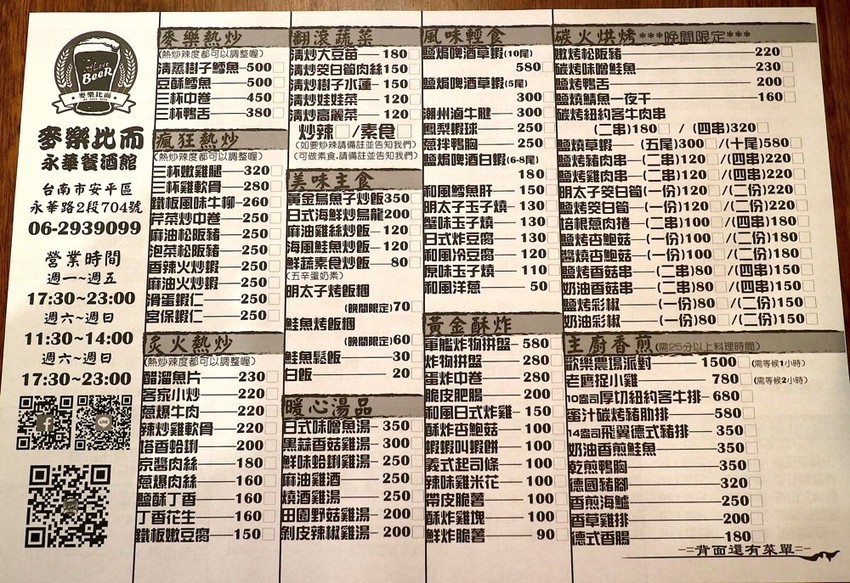 Love
BeeR
麥樂比而
麥樂比而
永華餐酒館
台南市安平區
永華路2段704號
06-2939099
營業時間
週一~週五
17:30~23:00
週六~週日
11:30~14:00
週六~週日
17:30~23:00
麥樂熱炒
(熱炒辣度都可以調整喔)
清蒸樹子鱈魚-500
豆酥鱈魚-500
三杯中卷-450
三杯鴨舌-380
瘋狂熱炒
(熱炒辣度都可以調整喔)
三杯嫩雞腿 320
三杯雞軟骨-280
鐵板風味牛柳-260
芹菜炒中卷-250
麻油松阪豬-250
泡菜松阪豬-250
香辣火炒蝦-250
麻油火炒蝦-250
滑蛋蝦仁-250
宮保蝦仁-250
炙火熱炒
(熱炒辣度都可以調整喔)
醋溜魚片-230
客家小炒-220
蔥爆牛肉-220
辣炒雞軟骨-220
塔香蛤蜊-200
京醬肉絲-180
蔥爆肉絲-160
鹽酥丁香-160
丁香花生-160
鐵板嫩豆腐-150
翻滾蔬菜
清炒大豆苗-180
清炒筊白筍肉絲150
清炒樹子水蓮-150
清炒娃娃菜-120
清炒高麗菜-120
炒辣 /素食
(如要炒辣請備註並告知我們)
(可做素食,請備註並告知我們)
美味主食
黃金烏魚子炒飯350
日式海鮮炒烏龍200
麻油雞絲炒飯-120
海風鮭魚炒飯-120
鮮蔬素食炒飯-80
(五辛蛋奶素)
明太子烤飯糰
(晚間限定)70
鮭魚烤飯糰
(晚間限定)60
鮭魚鬆飯-30
白飯-20
暖心湯品
日式味噌魚湯-350
黑蒜香菇雞湯-300
鮮味蛤蜊雞湯-250
麻油雞酒-250
燒酒雞湯-250
田園野菇雞湯-200
剝皮辣椒雞湯-200
風味輕食
鹽焗啤酒草蝦(10尾)
580
鹽焗啤酒草蝦(5尾)
300
潮州滷牛腱-300
鳳梨蝦球-250
蔥拌鴨胸-250
鹽焗啤酒白蝦(6-8尾)
180
和風鱈魚肝-150
明太子玉子燒-130
蟹味玉子燒-130
日式炸豆腐-130
和風冷豆腐-120
原味玉子燒-110
和風洋蔥-50
黃金酥炸
軍艦炸物拼盤-580
炸物拼盤-280
蛋炸中卷-280
脆皮肥腸-200
和風日式炸雞-150
酥炸杏鮑菇-100
蝦蝦叫蝦餅-100
義式起司條-100
辣味雞米花-100
帶皮脆薯-100
酥炸雞塊-100
鮮炸脆薯-90
碳火烘烤***晚間限定***
嫩烤松阪豬-220
碳烤味噌鮭魚-230
鹽烤鴨舌-200
鹽燒鯖魚一夜干-160
碳烤紐約客牛肉串
(二串)180 /(四串)320
鹽燒草蝦-(五尾)300 /(十尾)580
鹽烤豬肉串-(二串)120 /(四串)220
鹽烤雞肉串-(二串)120 /(四串)220
明太子筊白筍(一份)120 /(二份)200
鹽烤筊白筍-(一份)120 /(二份)200
培根蔥肉捲-(二串)100 /(四串)180
鹽烤杏鮑菇-(一份)100 /(二份)180
奶油杏鮑菇-(一份)100 /(二份)180
鹽烤香菇串-(二串)80 /(四串)150
奶油香菇串-(二串)80 /(四串)150
鹽烤彩椒-(一份)80 /(二份)150
奶油彩椒-(一份)80 /(二份)150
主廚香煎(需25分以上料理時間)
歡樂農場派對-1500(需等候1小時)
老鷹捉小雞-780(需等候2小時)
10盎司厚切紐約客牛排-680
蜜汁碳烤豬肋排-580
14盎司飛翼德式豬排-350
奶油香煎鮭魚-350
乾煎鴨胸-350
德國豬腳-320
香煎海鱸-250
香草雞排-200
德式香腸-180
-=背面還有菜單=-